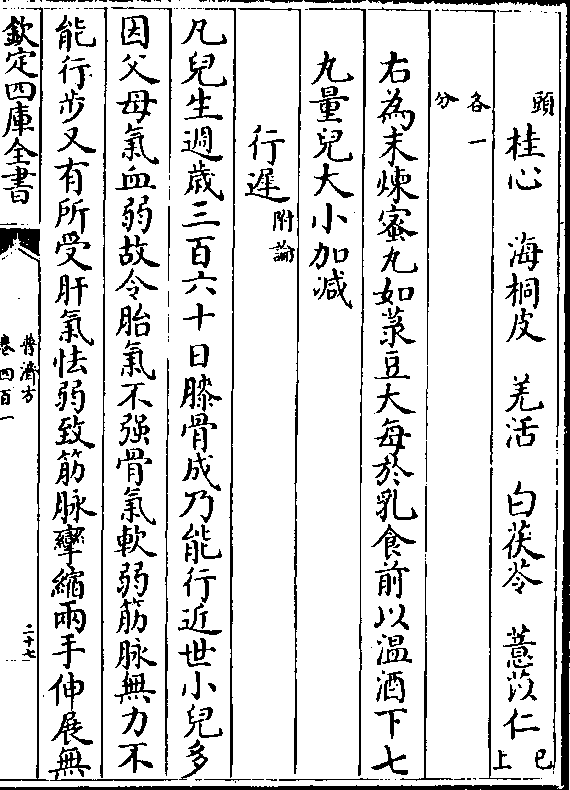 頭桂心　海桐皮　羌活　白茯苓　薏苡仁已上
各一分
右為末煉蜜丸如菉豆大每於乳食前以温酒下七
丸量兒大小加減
行遲附論
凡兒生週歳三百六十日膝骨成乃能行近世小兒多
因父母氣血弱故令胎氣不强骨氣軟弱筋脉無力不
能行步又有所受肝氣怯弱致筋脉攣縮兩手伸展無
欽定四庫全書
普濟方
卷四百一
二十七